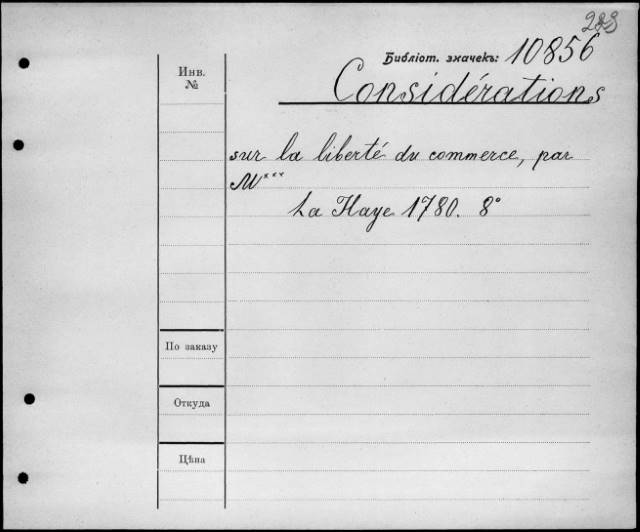 283
Библiот. значекъ: 10856
Инв.
№
Considérations
sur la liberté du commerce, par
M***
La Haye 1780. 8°
По заказу
Откуда
Цѣна